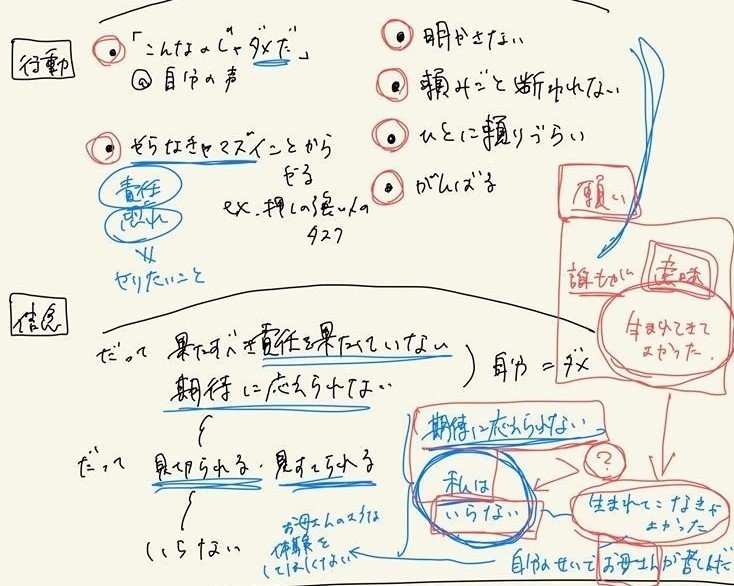 行動
「こんなのじゃダメだ」
自分の声
やらなきゃマズイことから
やる
ex. 押しの強い人の
タスク
責任
恐れ
やりたいこと
明かさない
頼みごと断われない
ひとに頼りづらい
がんばる
願い
誰もが
意味
生まれてきて
よかった.
信念
だって 果たすべき責任を果たしていない
期待に応えられない
自分=ダメ
だって 見切られる・見すてられる
いらない
お母さんのような
体験を
してほしくない
期待に応えられない
私は
いらない
?
生まれてこなきゃ
よかった
自分のせいでお母さんが苦しんだ